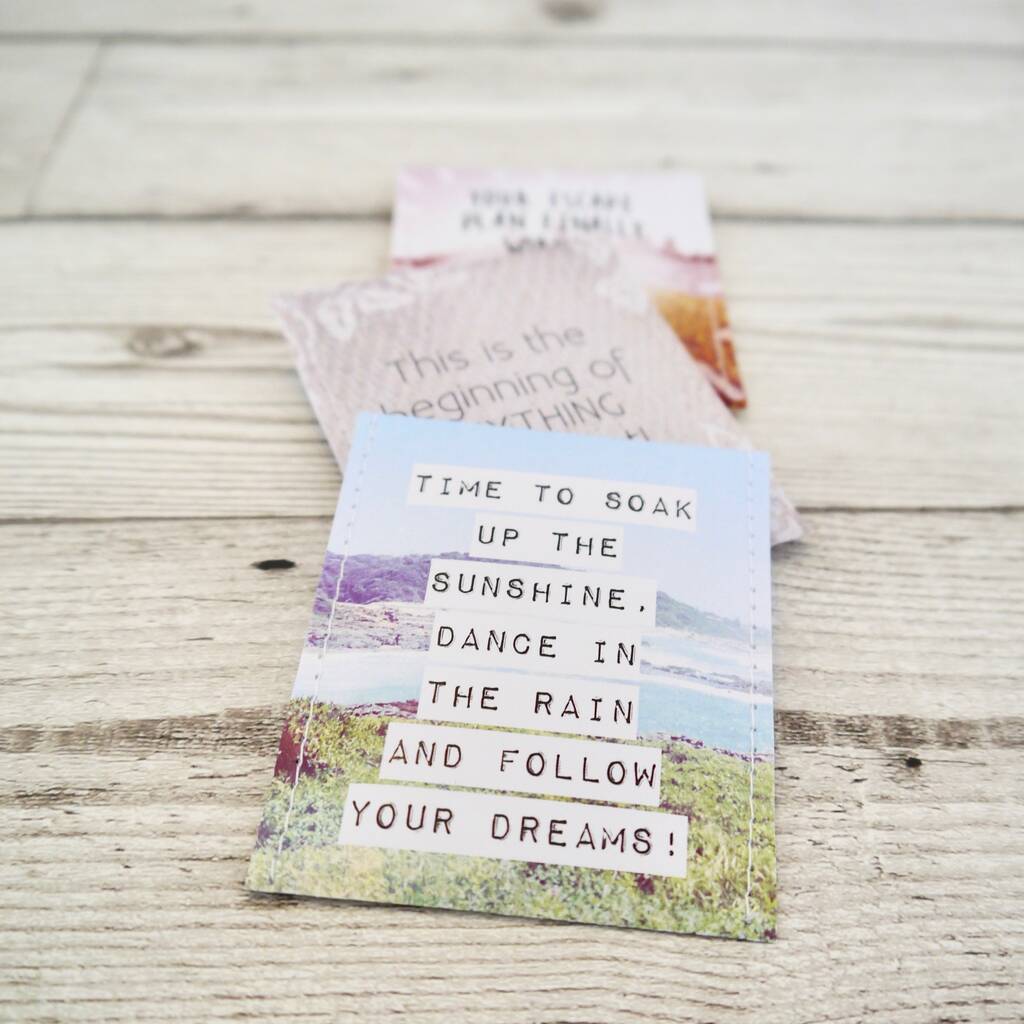 YOUR ESCAPE
PLAN FINALLY
This is the
beginning of
YTHING
TIME TO SOAK
UP THE
SUNSHINE,
DANCE IN
THE RAIN
AND FOLLOW
YOUR DREAMS!